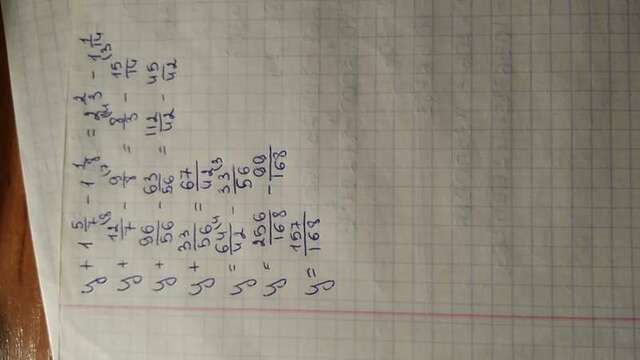 y + 1 5/7 - 1 1/8 = 2 2/3 - 1 1/14
y + 12/7 (8 - 9/8 (7 = 8/3 (14 - 15/14 (3
y + 96/56 - 63/56 = 112/42 - 45/42
y + 33/56 = 67/42
y = 64/42 (4 - 33/56 (3
y = 256/168 - 99/168
y = 157/168